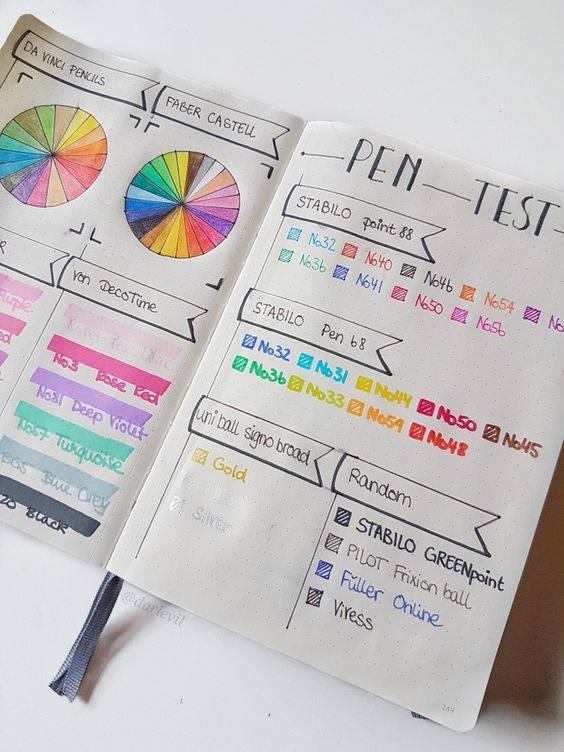 DA VINCI PENCILS
FABER CASTELL
von DecoTime
No3 Rose Red
No81 Deep Violet
No57 Turquoise
BG5 Blue Grey
20 Black
PEN TEST
STABILO point 88
No32 No40 No46 No54
No36 No41 No50 No56
STABILO Pen 68
No32 No31 No44 No50 No45
No36 No33 No54 No48
uni ball signo broad
Gold
Silver
Random
STABILO GREENpoint
PILOT Frixion ball
Füller Online
Viress
@darlevil
249